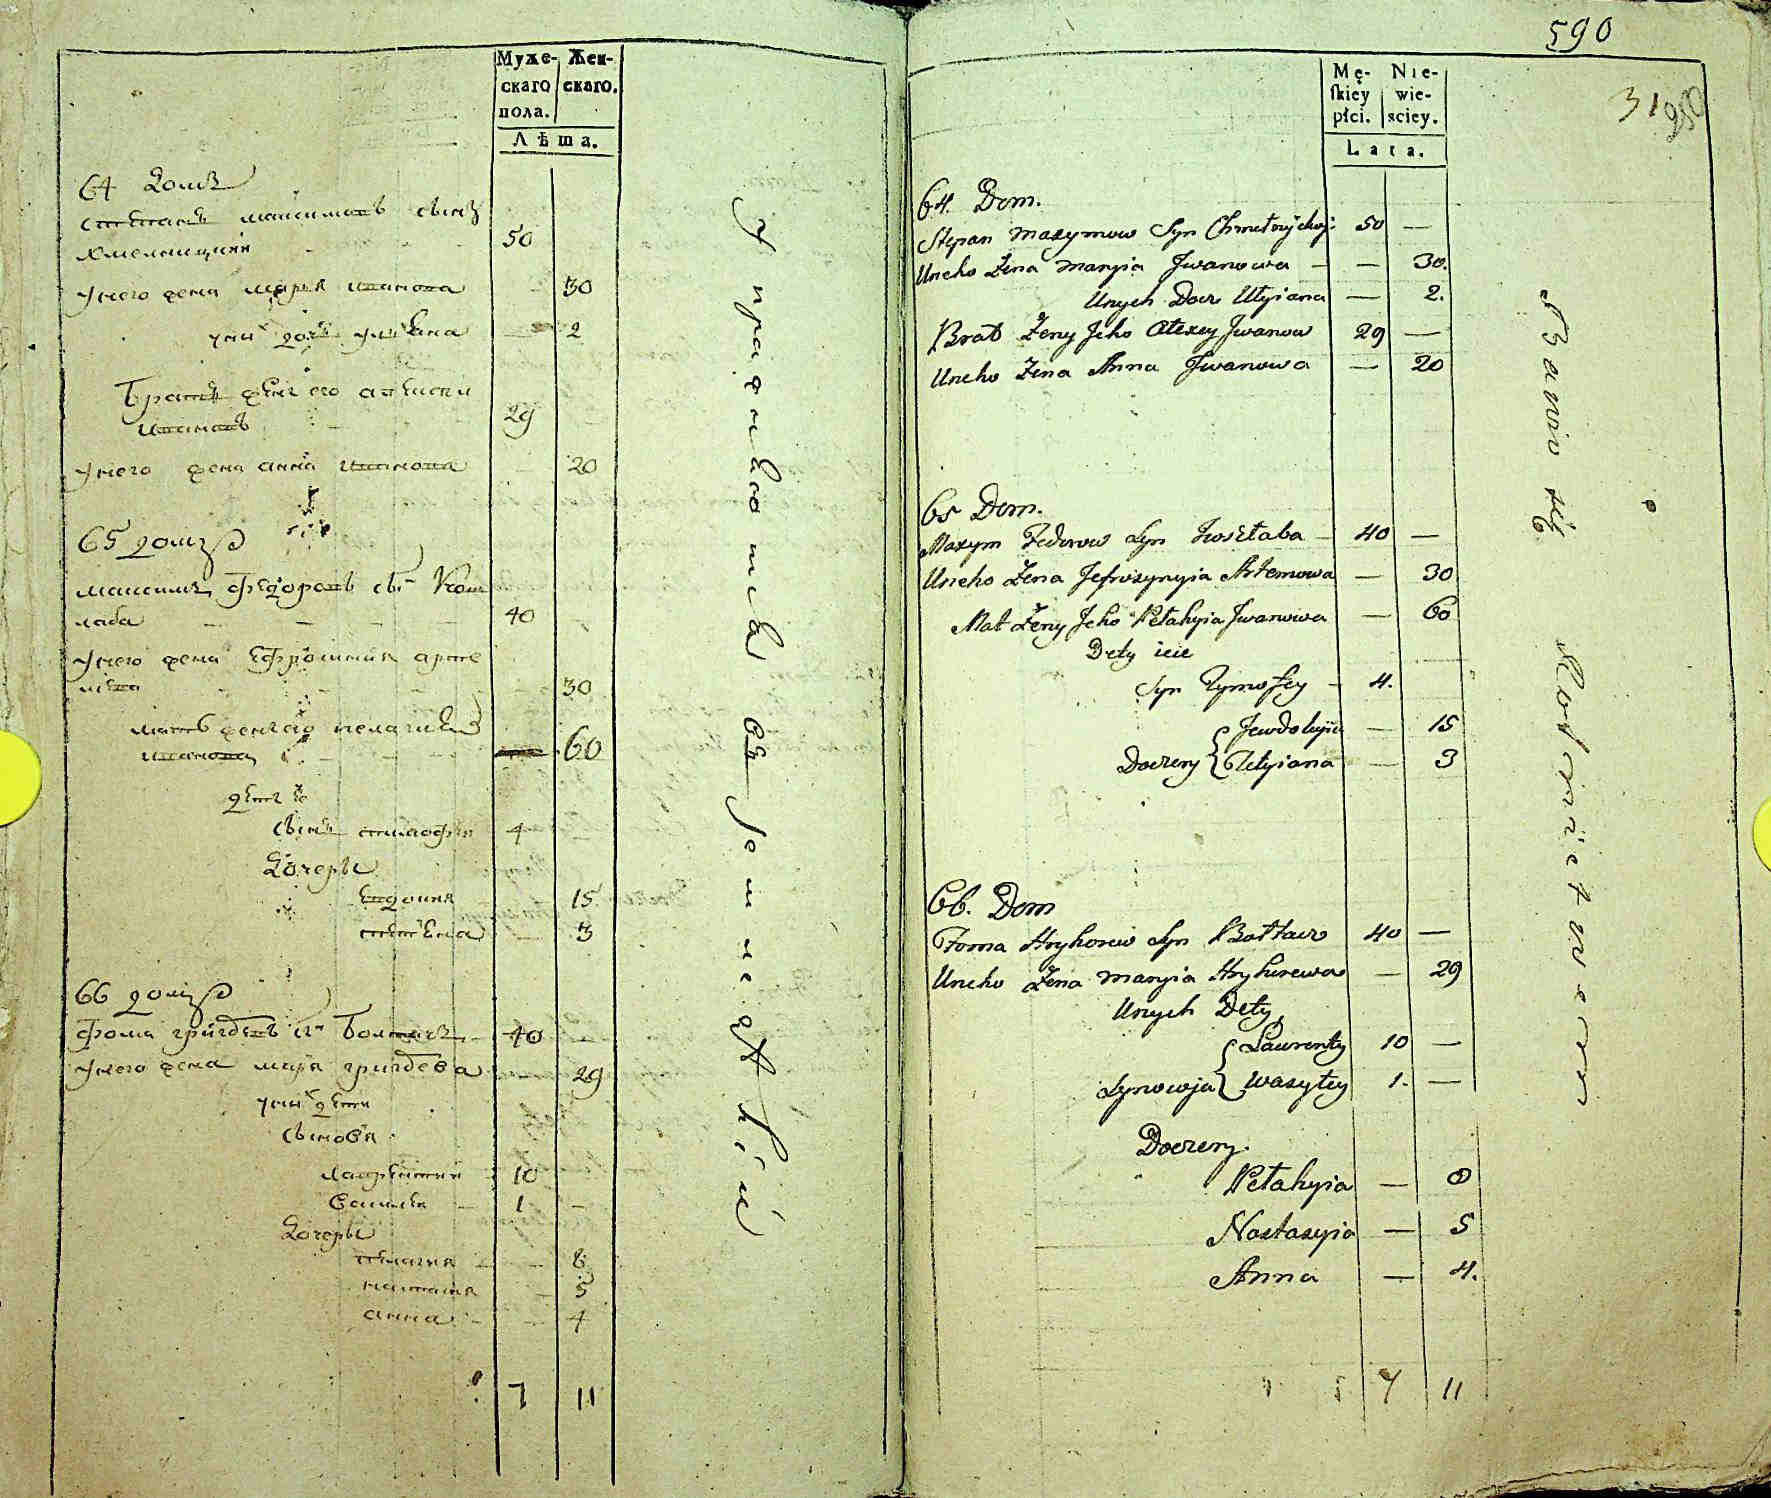 Муже- Жен-
скаго скаго.
пола.
Лѣта.
64 домъ
степанъ максимовъ сынъ
хмелницкий 50
у него жена марья иванова 30
у них дочь улияна 2
Братъ жены его алексей
ивановъ 29
у него жена анна иванова 20
65 домъ
максимъ федоровъ сынъ
лаба 40
у него жена Ефросиния арте
мова 30
мать жены его пелагия
иванова 60
дети ее
сынъ тимофей 4
дочеры
Евдокия 15
татияна 3
66 домъ
фома григоревъ сынъ 40
у него жена марья григорева 29
у них дети
сыновя
лаврентий 10
василей 1
дочеры
пелагия 8
настасия 5
анна 4
7 11
590
31
250
Mę- Nie-
skiey wie-
płci. sciey.
Lata.
64. Dom.
Stepan Maxymow Syn 50 —
Uneho Żena Maryia Jwanowa — — 30.
Unych Docz Ulyiana — 2.
Brat Żeny Jeho Alexey Jwanow 29 —
Uneho Żena Anna Jwanowa — 20
65 Dom.
Maxym Fedorow Syn — 40 —
Uneho Żena Jefrozynyia Artemowa — 30
Mat Żeny Jeho Pelahyia Jwanowa — 60
Dety ieie
Syn Tymofey — 4.
Jewdokyia — 15
Doczery { Tetyiana — 3
66. Dom
Foma Hryhorew Syn 40 —
Uneho Żena Maryia Hryhorewa — 29
Unych Dety
Laurenty 10 —
Synowja { Wasyley 1. —
Doczery.
Pelahyia — 8
Nastasyia — 5
Anna — 4.
7 11